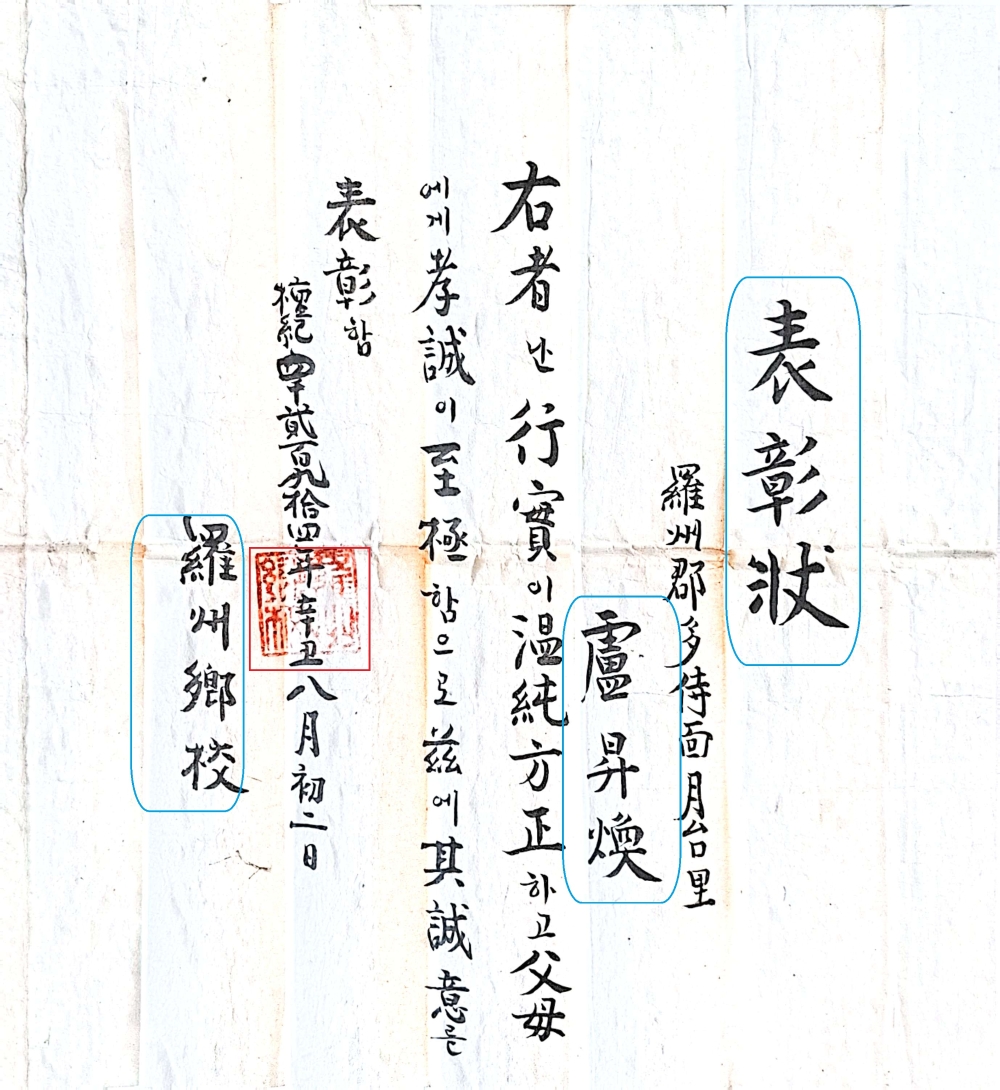 表彰狀
羅州郡多侍面月台里
盧昇煥
右者난行實이温純方正하고父母
에게孝誠이至極함으로玆에其誠意를
表彰함
檀紀四千貳百九拾四年辛丑八月初二日
羅州鄕校